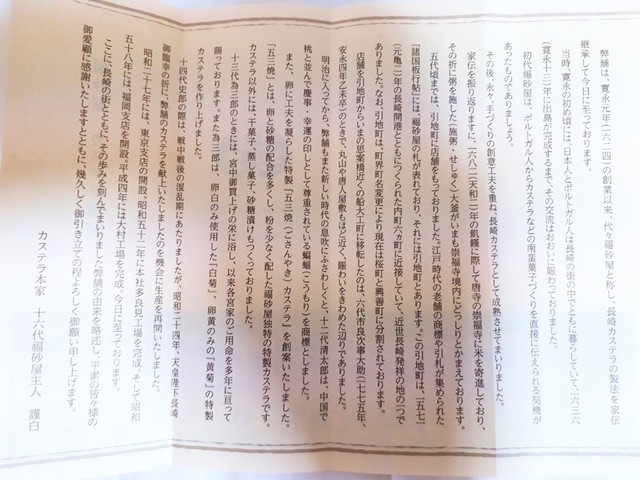 弊舗は、寛永元年(一六二四)の創業以来、代々福砂屋と称し、長崎カステラの製法を家伝
継承して今日に至っております。
当時、寛永の初め頃には、日本人とポルトガル人は長崎の街の中でともに暮らしていて、一六三六
(寛永十三)年に出島が完成するまで、その交流はおおいに賑わっておりました。
初代福砂屋は、ポルトガル人からカステラなどの南蛮菓子づくりを直接に伝えられる契機が
あったものでありましょう。
その後、永々手づくりの創意工夫を重ね、長崎カステラとして成熟させてまいりました。
家伝を振り返りますに、一六八二(天和二)年の飢饉に際して唐寺の崇福寺に米を寄進しており、
その折に粥を施した(施粥・せしゅく)大釜がいまも崇福寺境内にどっしりとかまえております。
五代頃までは、引地町に店舗をもっておりました。江戸時代の老舗の商標や引札が集められた
『諸国板行帖』には、「福砂屋」の札が表れており、それには引地町とあります。この引地町は、一五七一
(元亀二)年の長崎開港とともにつくられた内町六カ町に近接していて、近世長崎発祥の地の一つで
ありました。なお、引地町は、町界町名変更により現在は桜町と興善町に分割されております。
店舗を引地町からいまの思案橋近くの船大工町に移転したのは、六代市良次事大助(一七七五年、
安永四年乙未卒)のときで、丸山や唐人屋敷もほど近く、賑わいをきわめた辺りでありました。
明治に入ってから、弊舗もまた新しい時代の息吹にふさわしくと、十二代清太郎は、中国で
桃と並んで慶事・幸運の印しとして尊重されている蝙蝠(こうもり)を商標としました。
また、卵に工夫を凝らした特製『五三焼(ごさんやき)カステラ』を創案いたしました。
「五三焼」とは、卵と砂糖の配合を多くし、粉を少なく配した福砂屋独特の特製カステラです。
カステラ以外には、干菓子、蒸し菓子、砂糖漬けもつくっておりました。
十三代為三郎のときには、宮中御買上げの栄に浴し、以来各宮家のご用命を多年に亘って
賜っております。また為三郎は、卵白のみ使用した「白菊」、卵黄のみの「黄菊」の特製
カステラを作り上げました。
十四代史郎の際は、戦中戦後の混乱期にあたりましたが、昭和二十四年、天皇陛下長崎
御臨幸の折に、弊舗のカステラを献上いたしましたのを機会に生産を再開いたしました。
昭和二十七年には、東京支店の開設。昭和五十二年に本社多良見工場を完成、そして昭和
五十八年には、福岡支店を開設。平成四年には大村工場を完成、今日に至っております。
ここに、長崎の街とともに、その歩みを刻んでまいりました弊舗の由来を略述し、平素の皆々様の
御愛顧に感謝いたしますとともに、幾久しく御引き立ての程よろしく御願い申し上げます。
カステラ本家 十六代福砂屋主人 謹白